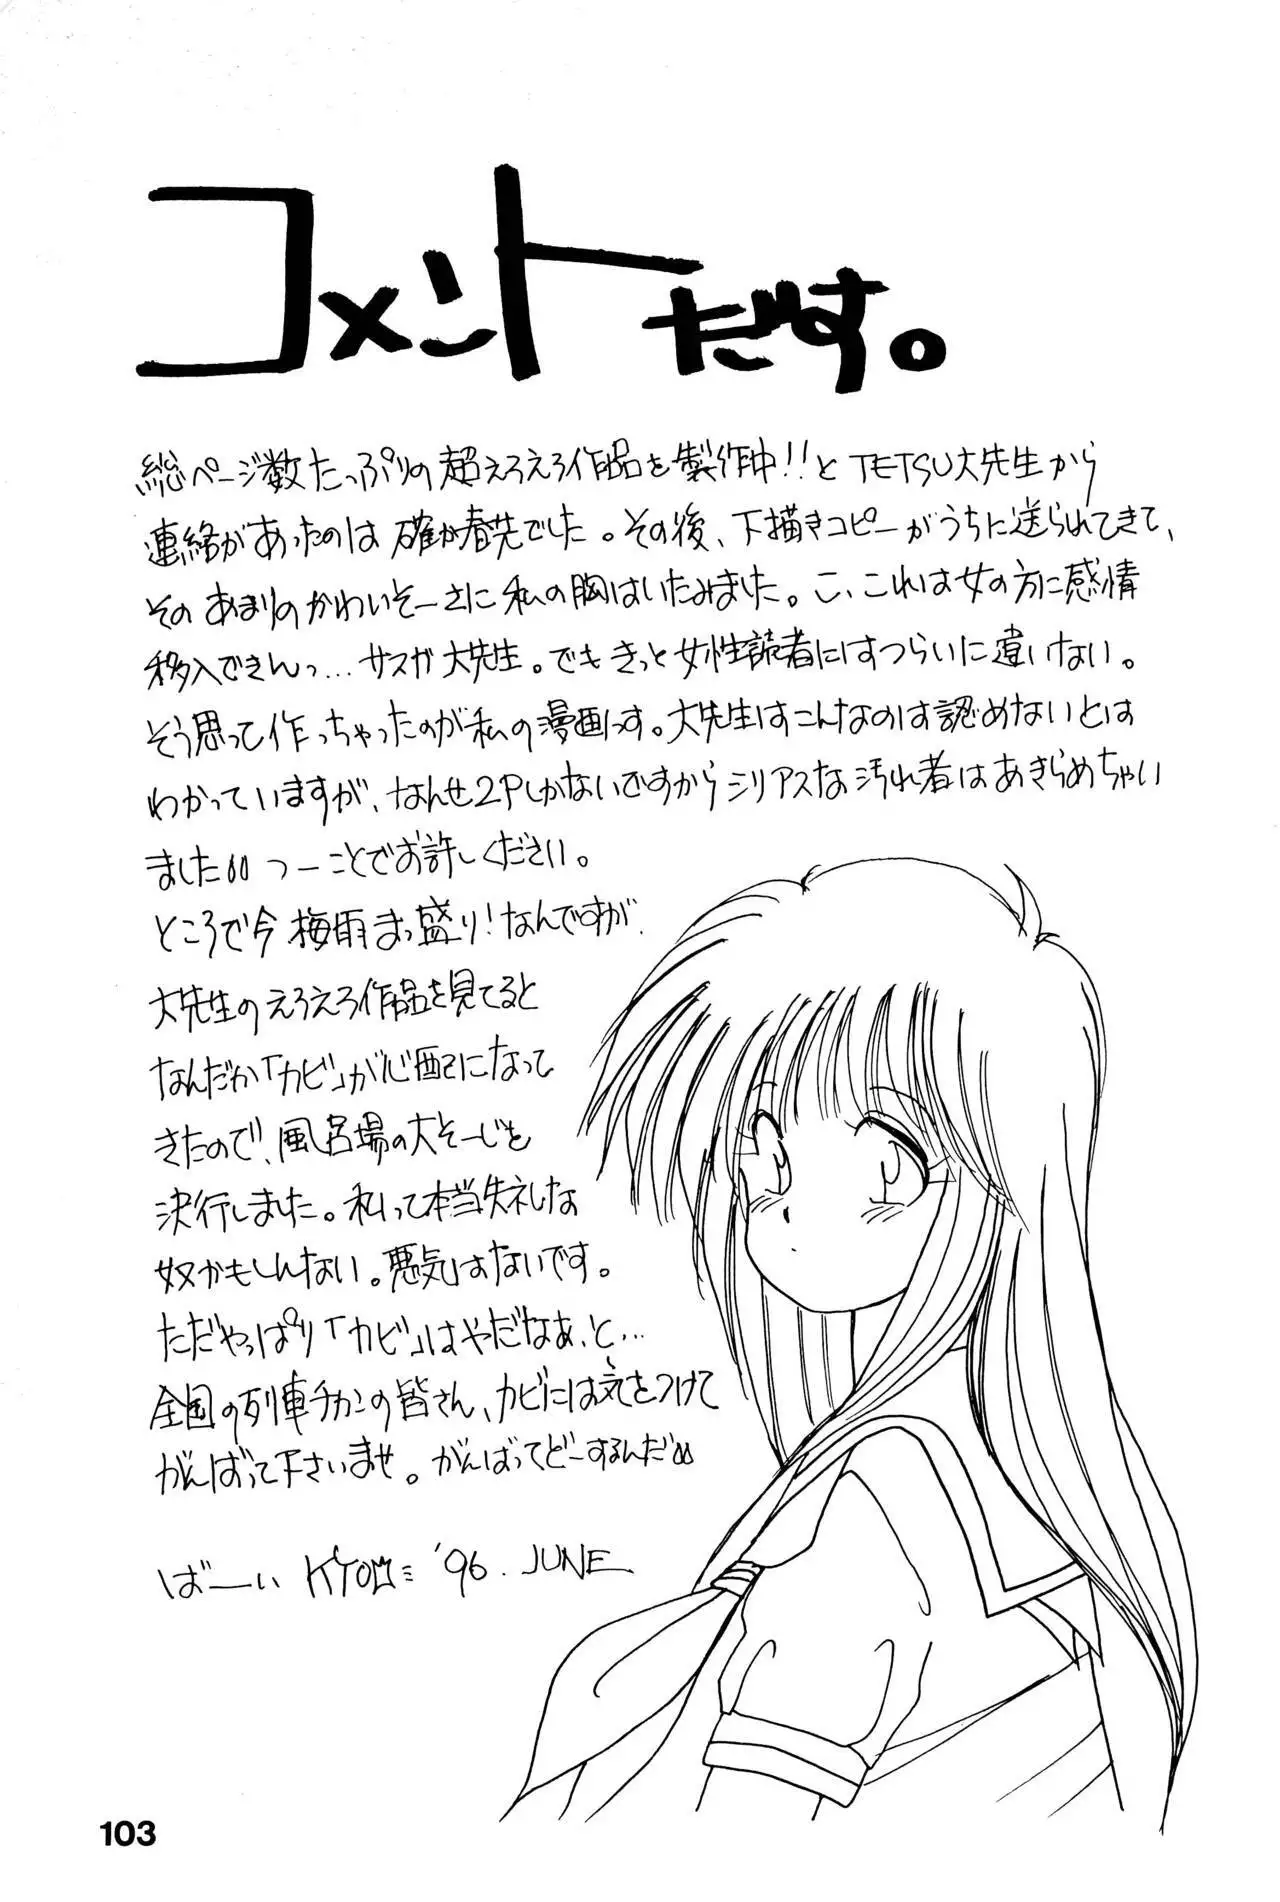 コメントだす。
総ページ数たっぷりの超えろえろ作品を製作中!!とTETSU大先生から
連絡があったのは確か春先でした。その後、下描きコピーがうちに送られてきて、
そのあまりのかわいそーさに私の胸はいたみました。こ、これは女の方に感情
移入できんっ…サスガ大先生。でもきっと女性読者にはすつらいに違いない。
そう思って作っちゃったのが私の漫画っす。大先生はこんなのは認めないとは
わかっていますが、なんせ2Pしかないですからシリアスな汚れ者はあきらめちゃい
ました つーことでお許しください。
ところで今梅雨まっ盛り!なんですが、
大先生のえろえろ作品を見てると
なんだか「カビ」が心配になって
きたので、風呂場の大そーじを
決行しました。私って本当失礼な
奴かもしんない。悪気はないです。
ただやっぱり「カビ」はやだなぁ、と…
全国の列車チカンの皆さん、カビには気をつけて
がんばって下さいませ。がんばってどーするんだ
ばーい KIYOMI '96. JUNE
103